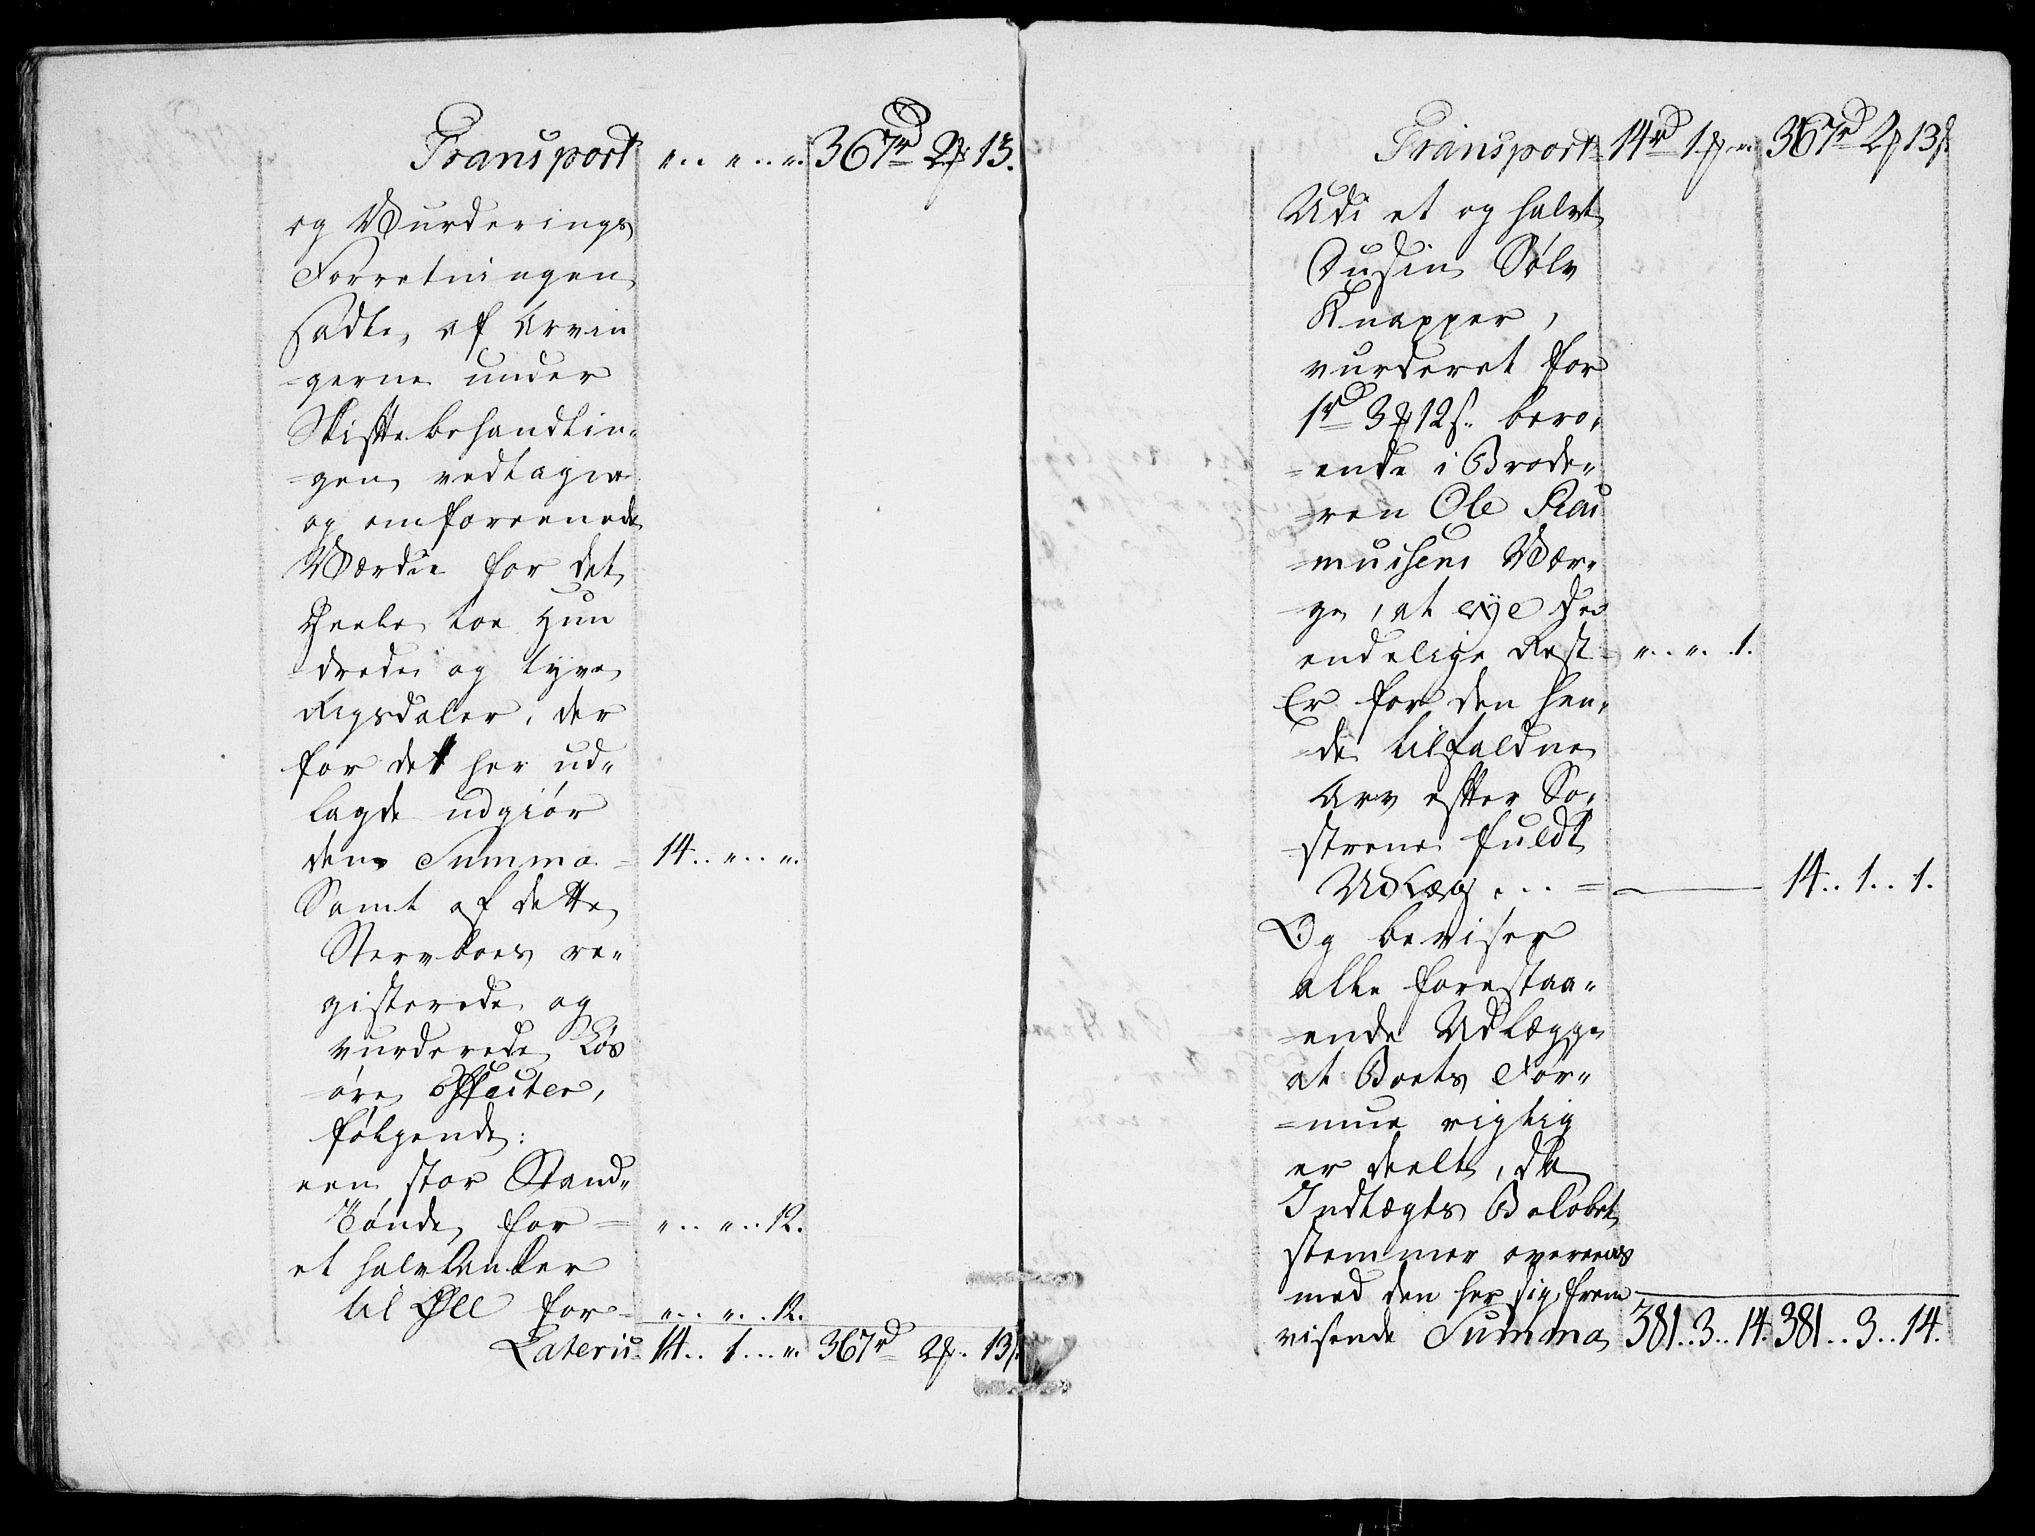 Transport „.. „.. „. 367rd 2# 13.
og Vurderings
Forretningen
sadte, af Arvin
-gerne under
Skiftebehandlin-
-gen vedtagne
og omforeenede
Værdie for det
Heele toe Hun
drede og tyve
Rigsdaler, der
for det her ud-
lagde udgiør
den Summa = 14.. „.. „.
Samt af dette
Stervboes re-
gisterede og
vurderede Løs
øre Effecter,
følgende:
een stor Stand-
Tønde, for = „.. „.. 12.
et halv Anker
til Øll for „.. „.. 12.
Lateris 14.. 1... „. 367rd 2#. 13s.
Transport 14rd 1# „. 367rd 2# 13s.
Udi et og halvt
Dusin Sølv
Knapper,
vurderet for
1rd 3# 12s. bero-
-ende i Brode-
-ren Ole Ras
-musens Vær-
-ge, at nye den
endelige Rest „.. „.. 1.
Er for den hen-
-de tilfaldne
Arv efter Sø-
-strene fuldt
Udlæg ... = 14.. 1.. 1.
Og beviser
alle forestaa-
-ende Udlægge
at Boets For-
-mue rigtig
er deelt, da
Indtægts Beløbet
stemmer overeens
med den her sig frem
visende Summa 381.. 3.. 14. 381.. 3.. 14.